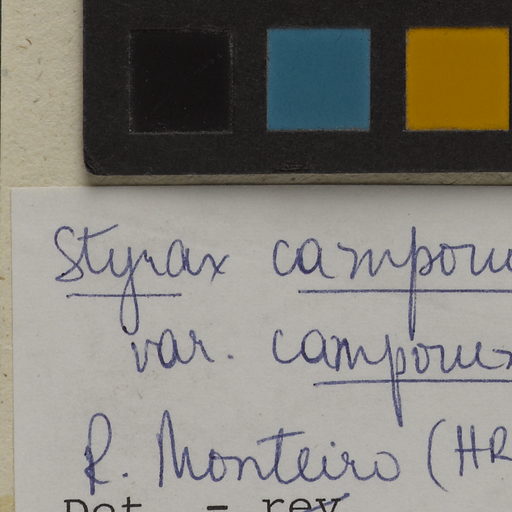 Styrax camporu
var. camporu
R. Monteiro (HR
Det. - rev